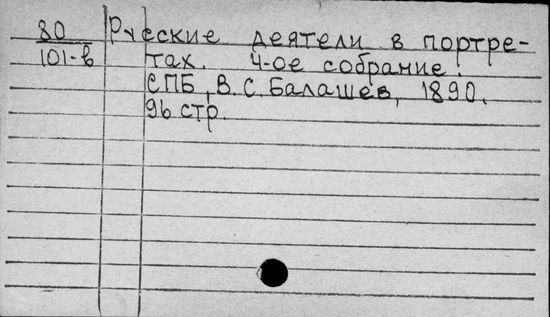 80 Русские деятели в портре-
101-в тах. 4-ое собрание.
СПБ, В. С. Балашев, 1890.
96 стр.